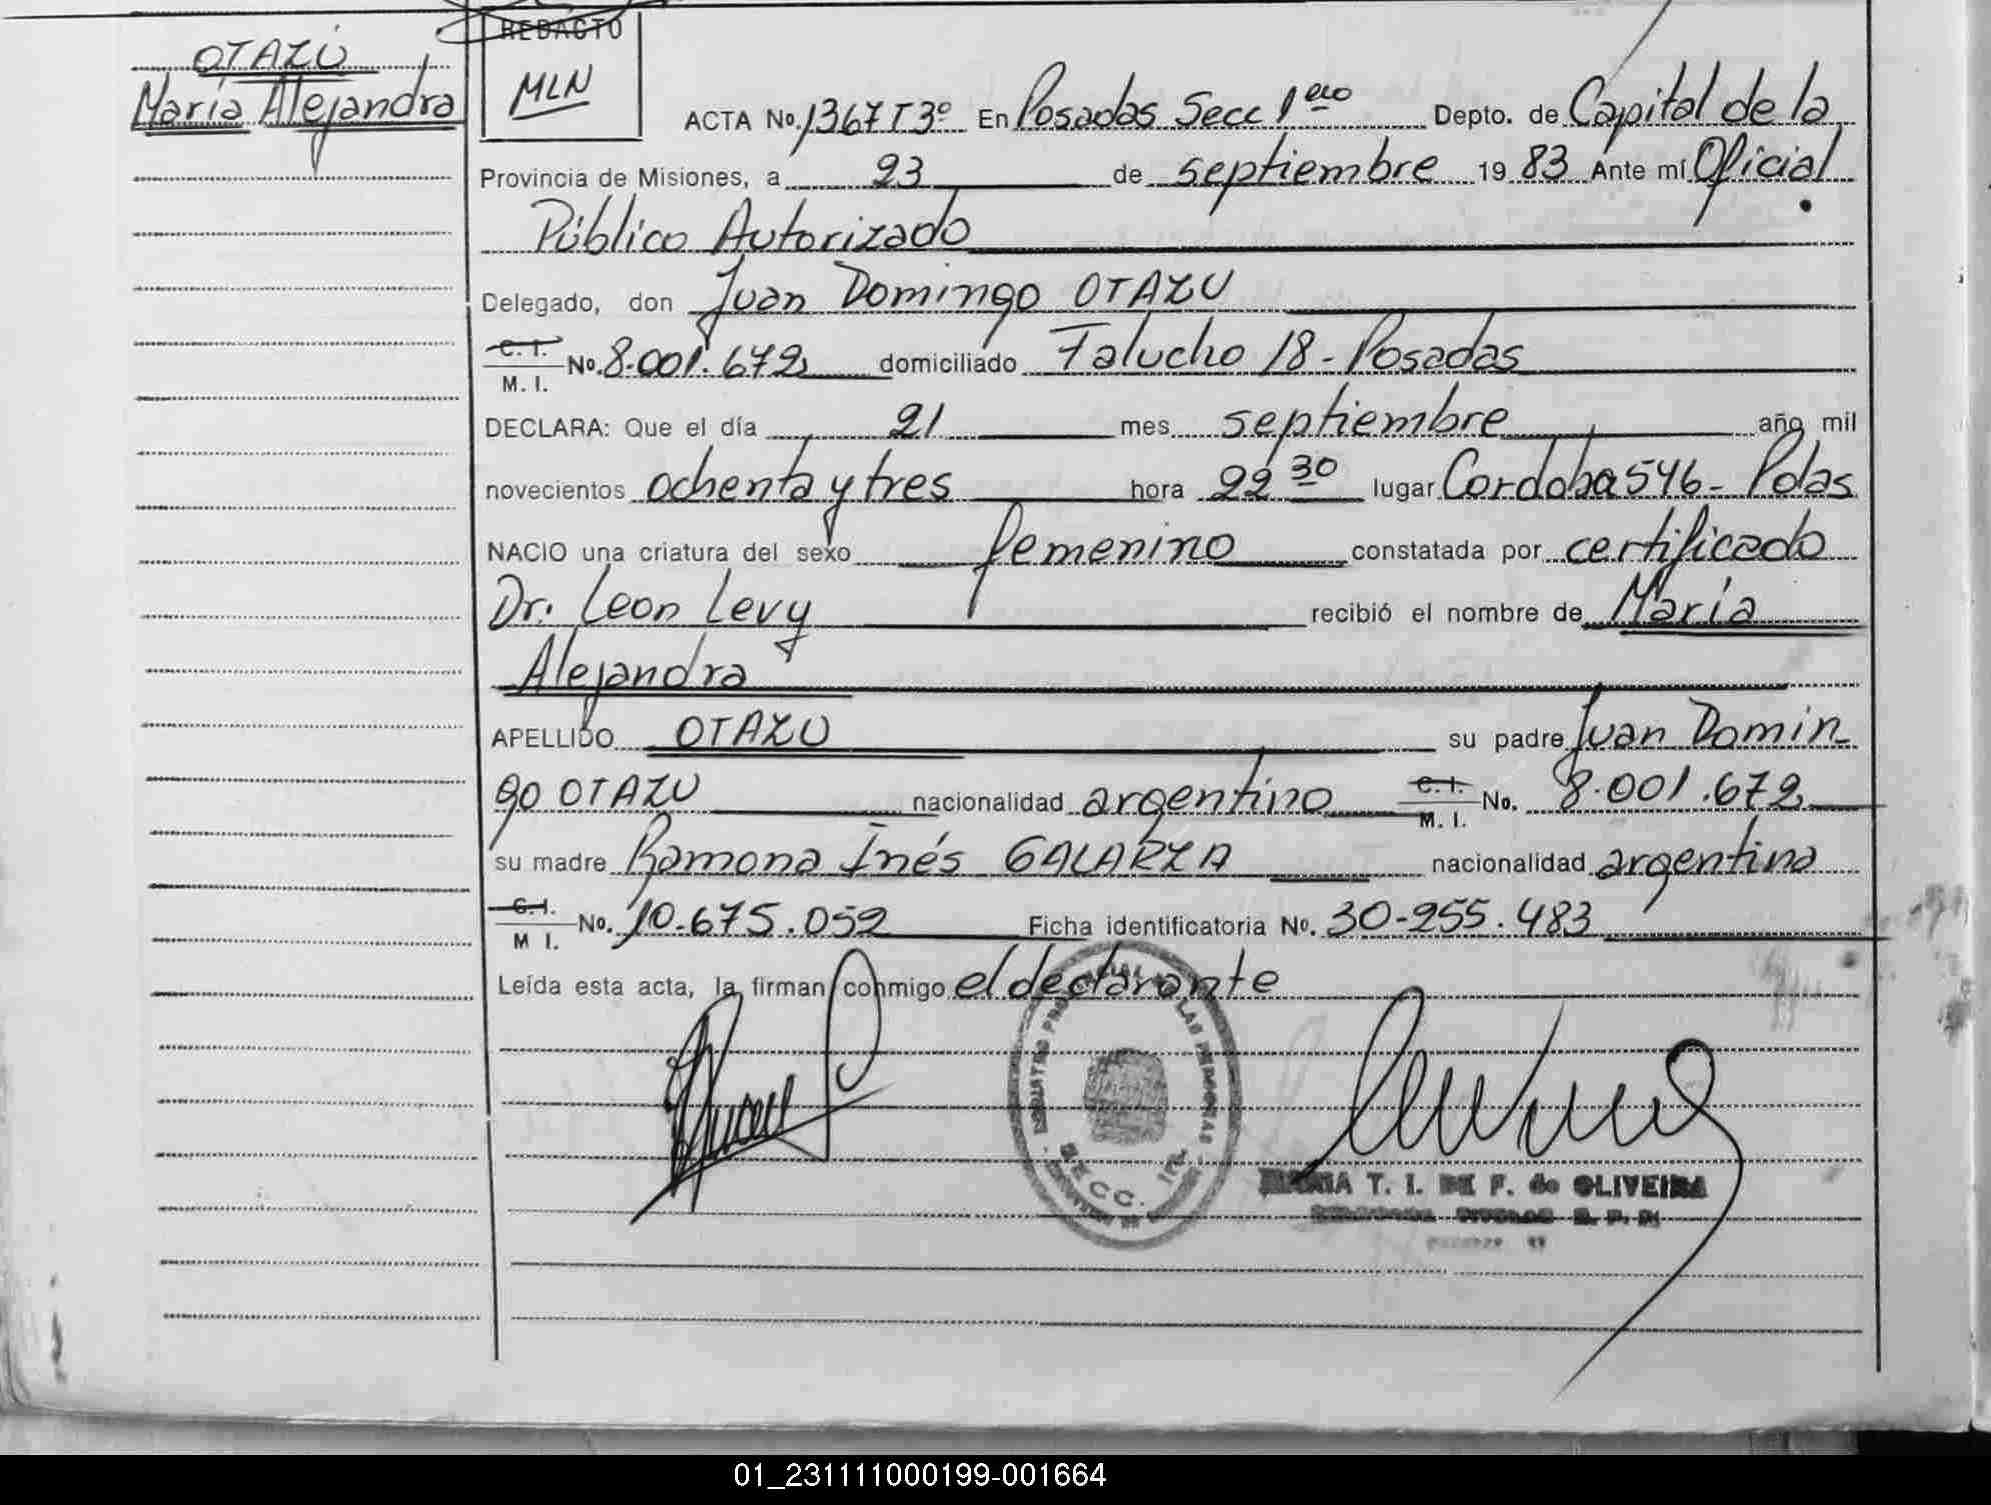 OTAZÚ
María Alejandra
REDACTO
MLN
ACTA No. 1367 T 3º En Posadas Secc 1era Depto. de Capital de la
Provincia de Misiones, a 23 de septiembre 1983 Ante mí Oficial
Público Autorizado
Delegado, don Juan Domingo OTAZU
C. I. M. I. No. 8.001.672 domiciliado Falucho 18 - Posadas
DECLARA: Que el día 21 mes septiembre año mil
novecientos ochenta y tres hora 22 30 lugar Cordoba 546 - Pdas
NACIO una criatura del sexo femenino constatada por certificado
Dr. Leon Levy recibió el nombre de María
Alejandra
APELLIDO OTAZU su padre Juan Domin
go OTAZU nacionalidad argentino C. I. M. I. No. 8.001.672
su madre Ramona Inés GALARZA nacionalidad argentina
C. I. M I. No. 10.675.052 Ficha identificatoria No. 30-255.483
Leída esta acta, la firman conmigo el declarante
LAS PERSONAS
SECC. 1ra.
T. I. DE F. de OLIVEIRA
01_231111000199-001664